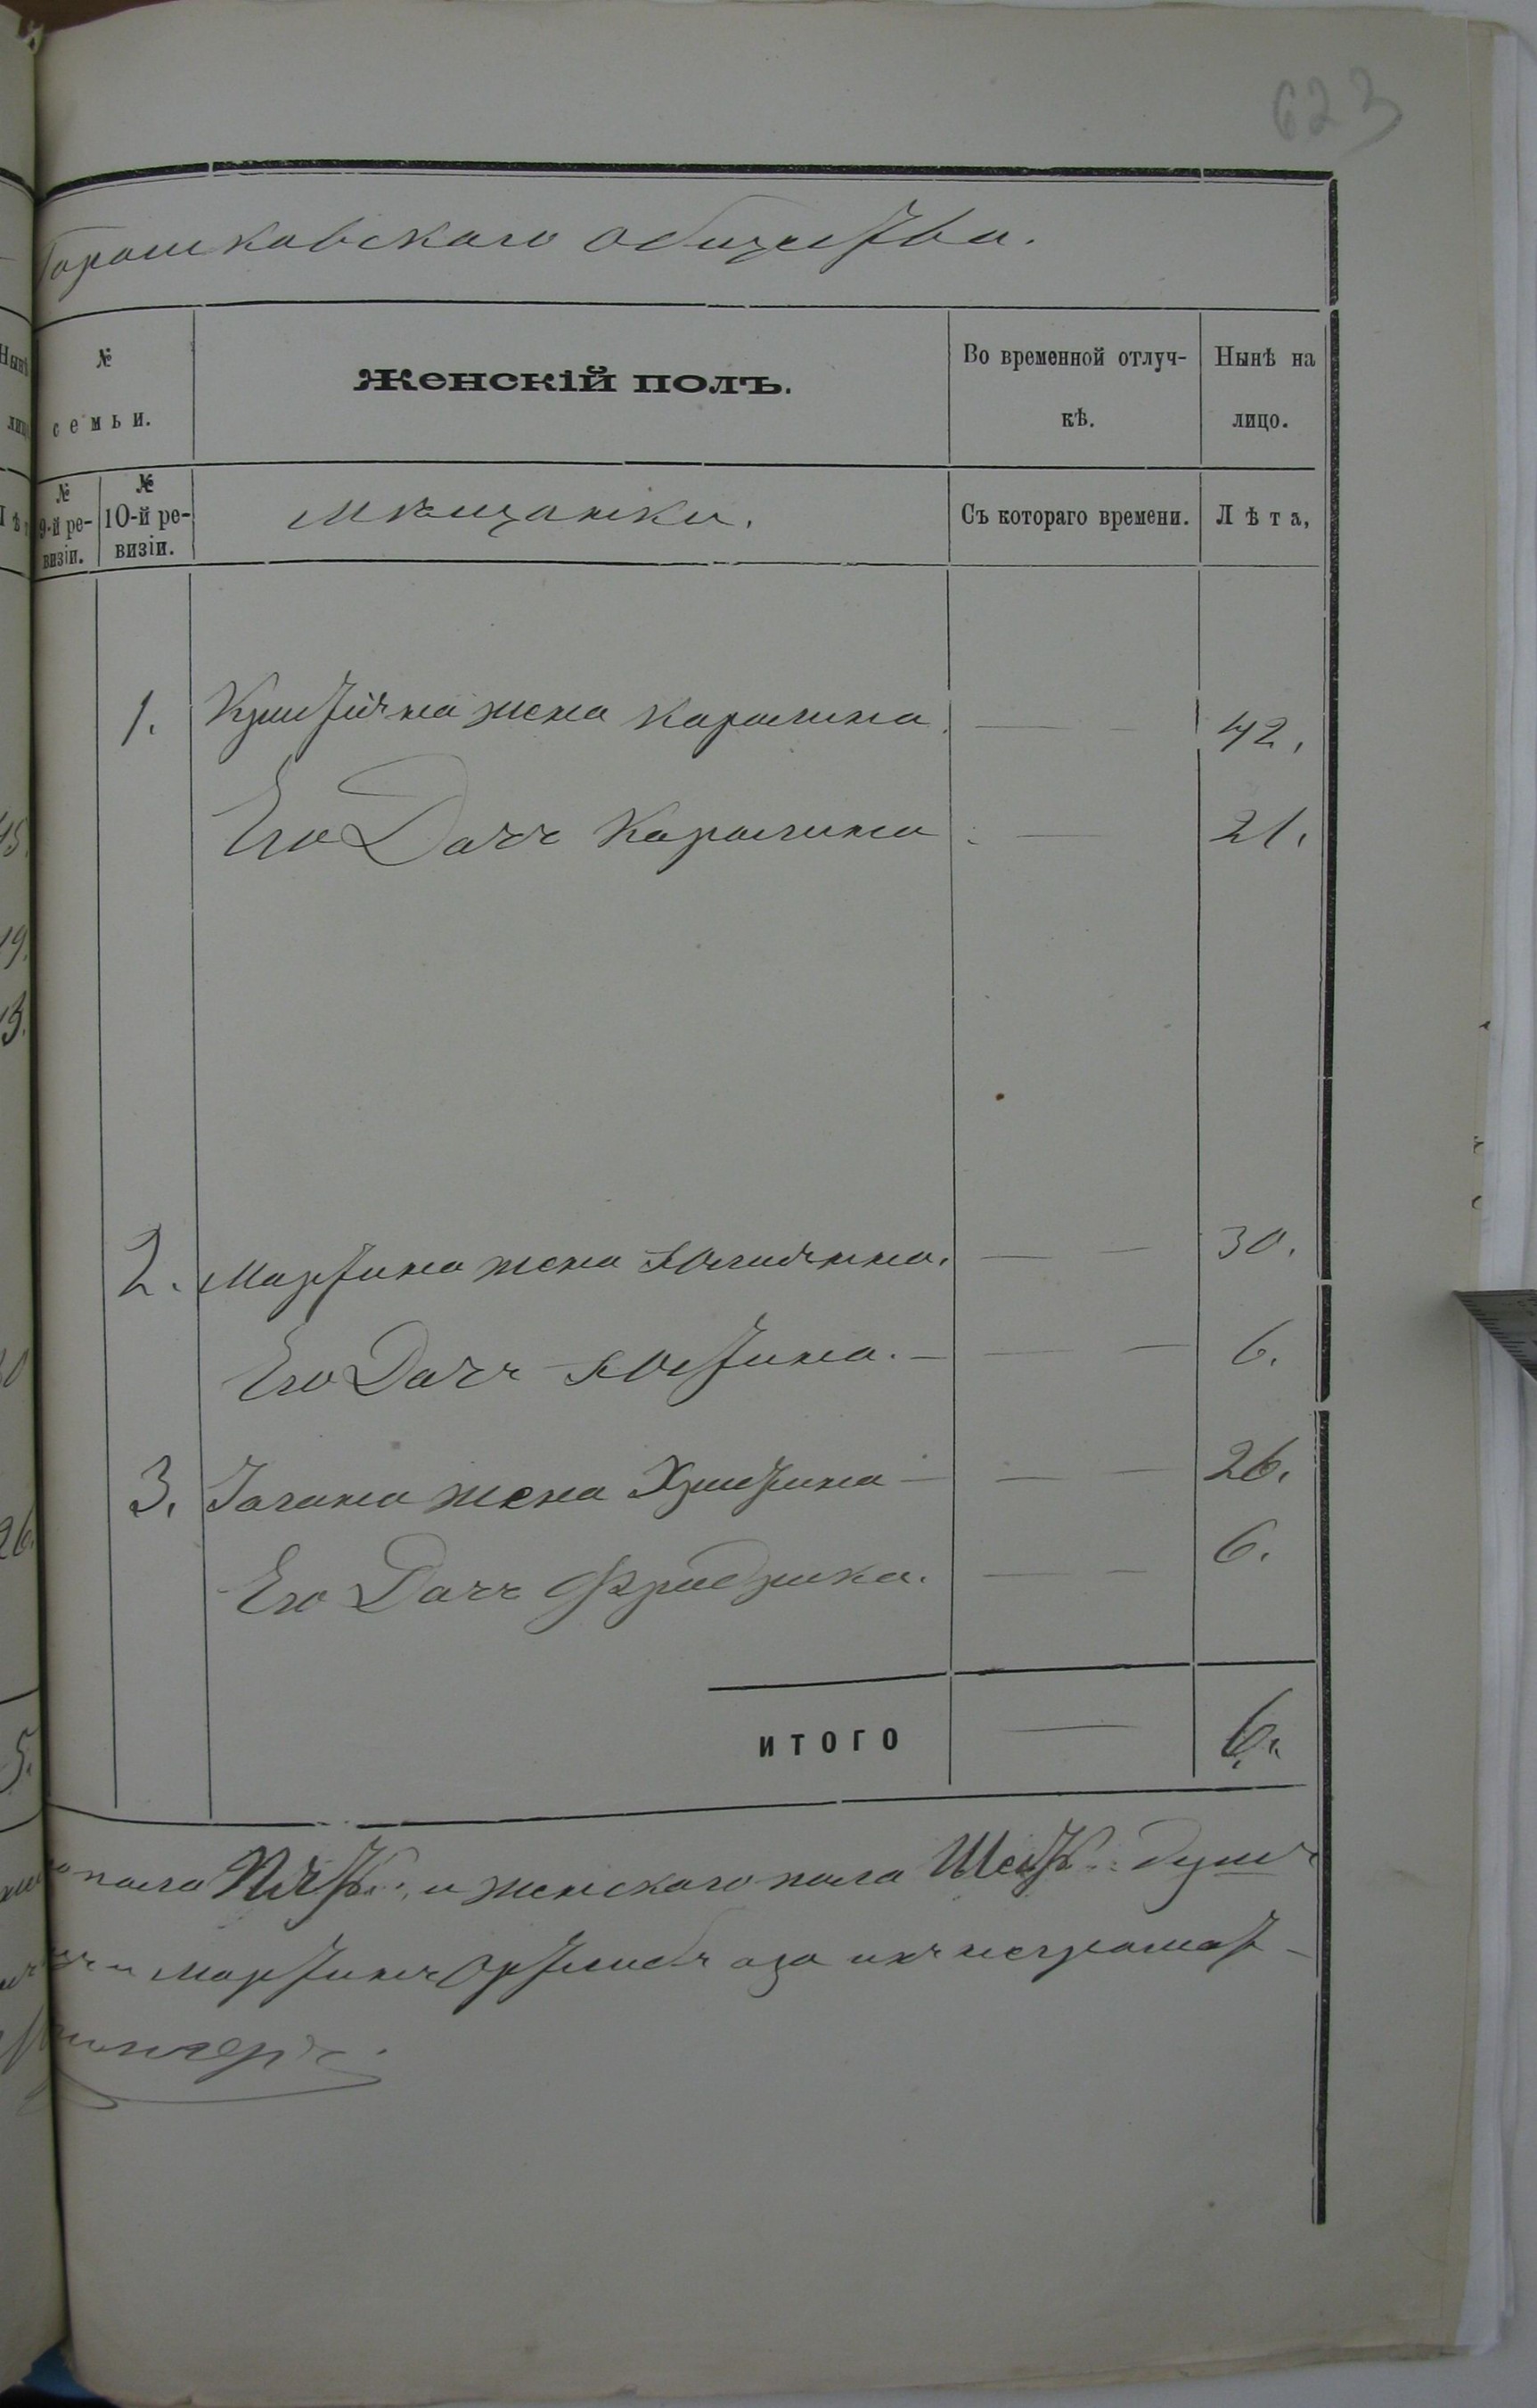 623
Горошковскаго общества.
№ семьи.
Женскій полъ.
Во временной отлуч-кѣ.
Нынѣ на лицо.
№ 9-й ре-визіи.
№ 10-й ре-визіи.
Мѣщанки.
Съ котораго времени.
Лѣта,
1. Жена Каролина 42.
Его Дочь Каролина 21.
2. Мартина жена 30.
Его Дочь Юстина. 6.
3. жена Христина 26.
Его Дочь Фридрика. 6.
ИТОГО 6.
пола Пять, и женскаго пола Шесть душъ
и Мартинъ а за ихъ неграмот-